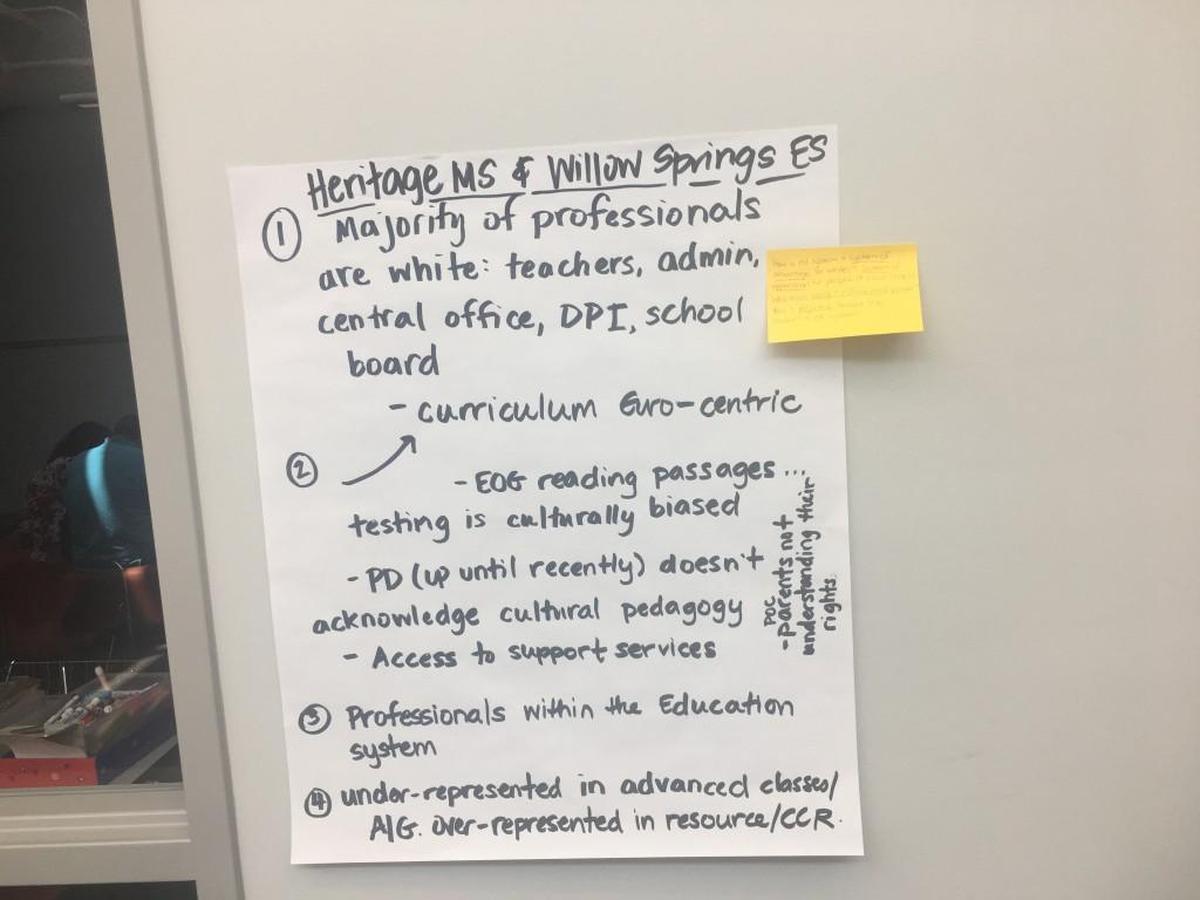 Heritage MS & Willow Springs ES
① Majority of professionals
are white: teachers, admin,
central office, DPI, school
board
- curriculum Euro-centric
②
- EOG reading passages...
testing is culturally biased
- PD (up until recently) doesn't
acknowledge cultural pedagogy
- Access to support services
POC
- parents not
understanding their
rights.
③ Professionals within the Education
system
④ under-represented in advanced classes/
AIG. over-represented in resource/CCR.